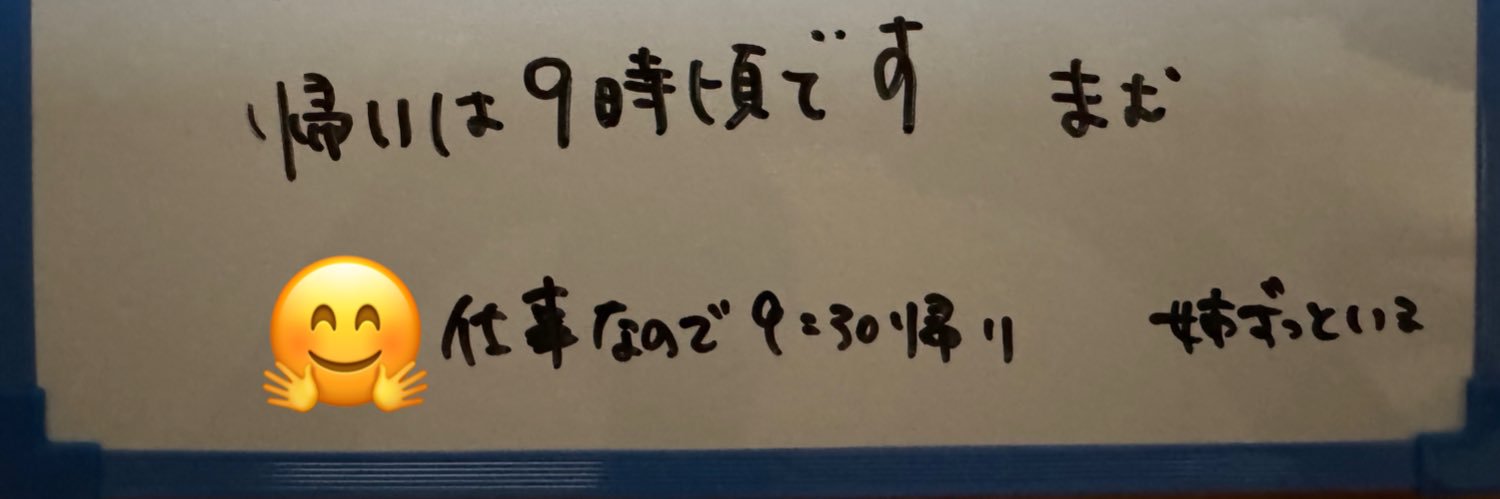 帰りは9時頃です まむ
仕事なので9:30帰り 姉ずっといる